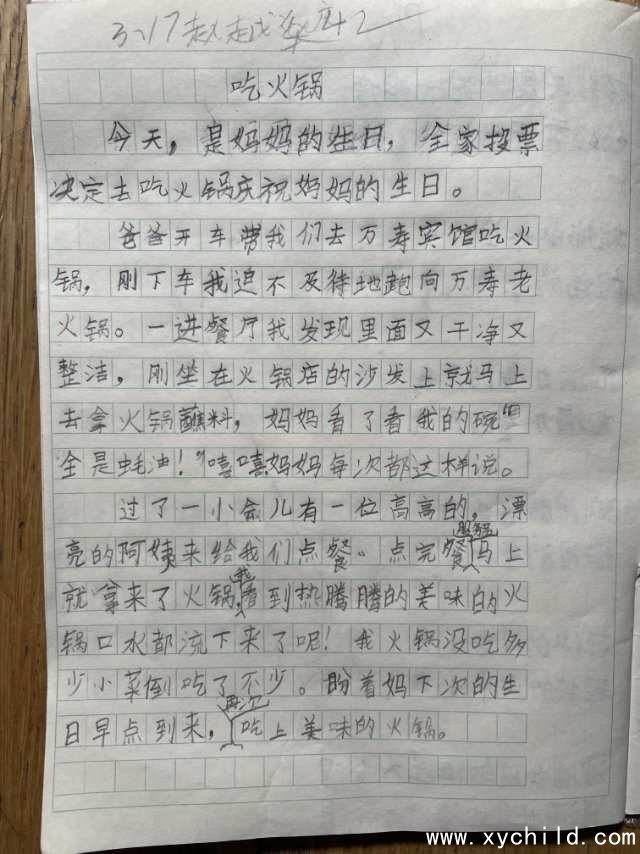 3.17赵越
吃火锅
今天，是妈妈的生日，全家投票
决定去吃火锅庆祝妈妈的生日。
爸爸开车带我们去万寿宾馆吃火
锅，刚下车我迫不及待地跑向万寿老
火锅。一进餐厅我发现里面又干净又
整洁，刚坐在火锅店的沙发上就马上
去拿火锅蘸料，妈妈看了看我的碗“
全是蚝油！”嘻嘻妈妈每次都这样说。
过了一小会儿有一位高高的，漂
亮的阿姨来给我们点餐。点完餐马上
就拿来了火锅我看到热腾腾的美味的火
锅口水都流下来了呢！我火锅没吃多
少小菜倒吃了不少。盼着妈下次的生
日早点到来，再次吃上美味的火锅。
www.xychild.com